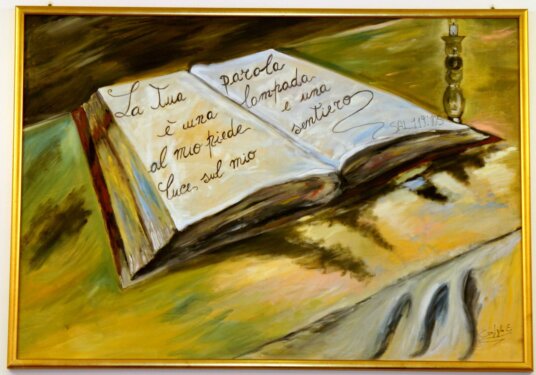 La Tua parola
è una lampada
al mio piede e una
luce sul mio sentiero
SAL. 119:105